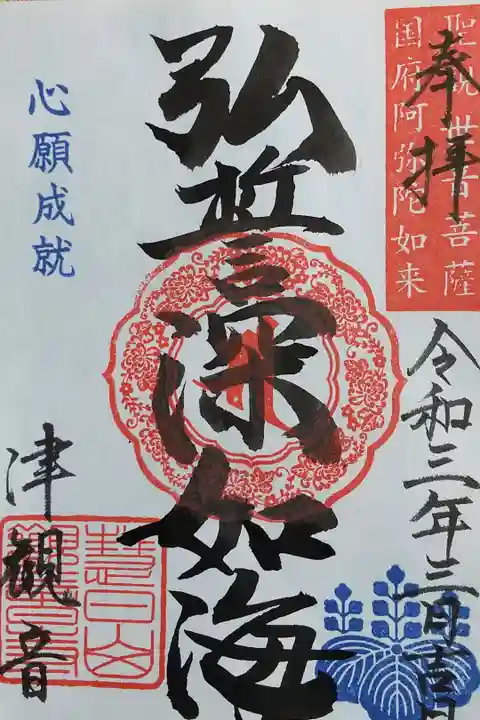 奉拝
聖観世音菩薩
国府阿弥陀如来
令和三年三月吉日
弘誓深如海
心願成就
津観音
恵日山
観音寺